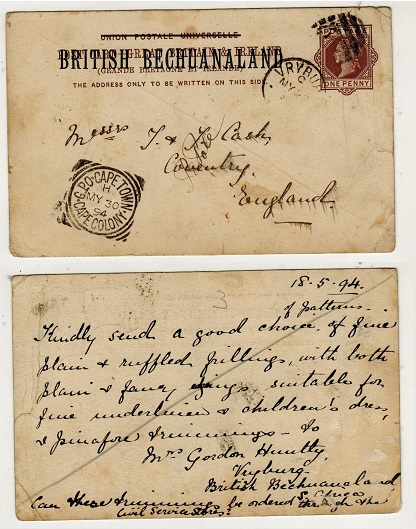 UNION POSTALE UNIVERSELLE
BRITISH BECHUANALAND
(GRANDE BRETAGNE ET IRLANDE)
THE ADDRESS ONLY TO BE WRITTEN ON THIS SIDE
ONE PENNY
VRYBURG
MY
Messrs J. & J. Cash,
Coventry,
England
G.P.O. CAPE TOWN
H
MY 30
94
CAPE COLONY
3
18-5-94.
of patterns
Kindly send a good choice, of fine
plain & ruffled frillings, with both
plain & fancy, suitable for
fine underlinen & children's dress,
& pinafore trimmings - to
Mrs Gordon Huntly
Vryburg
British Bechuanaland
S. Africa
Can these trimmings be ordered through the
Civil Service Stores?